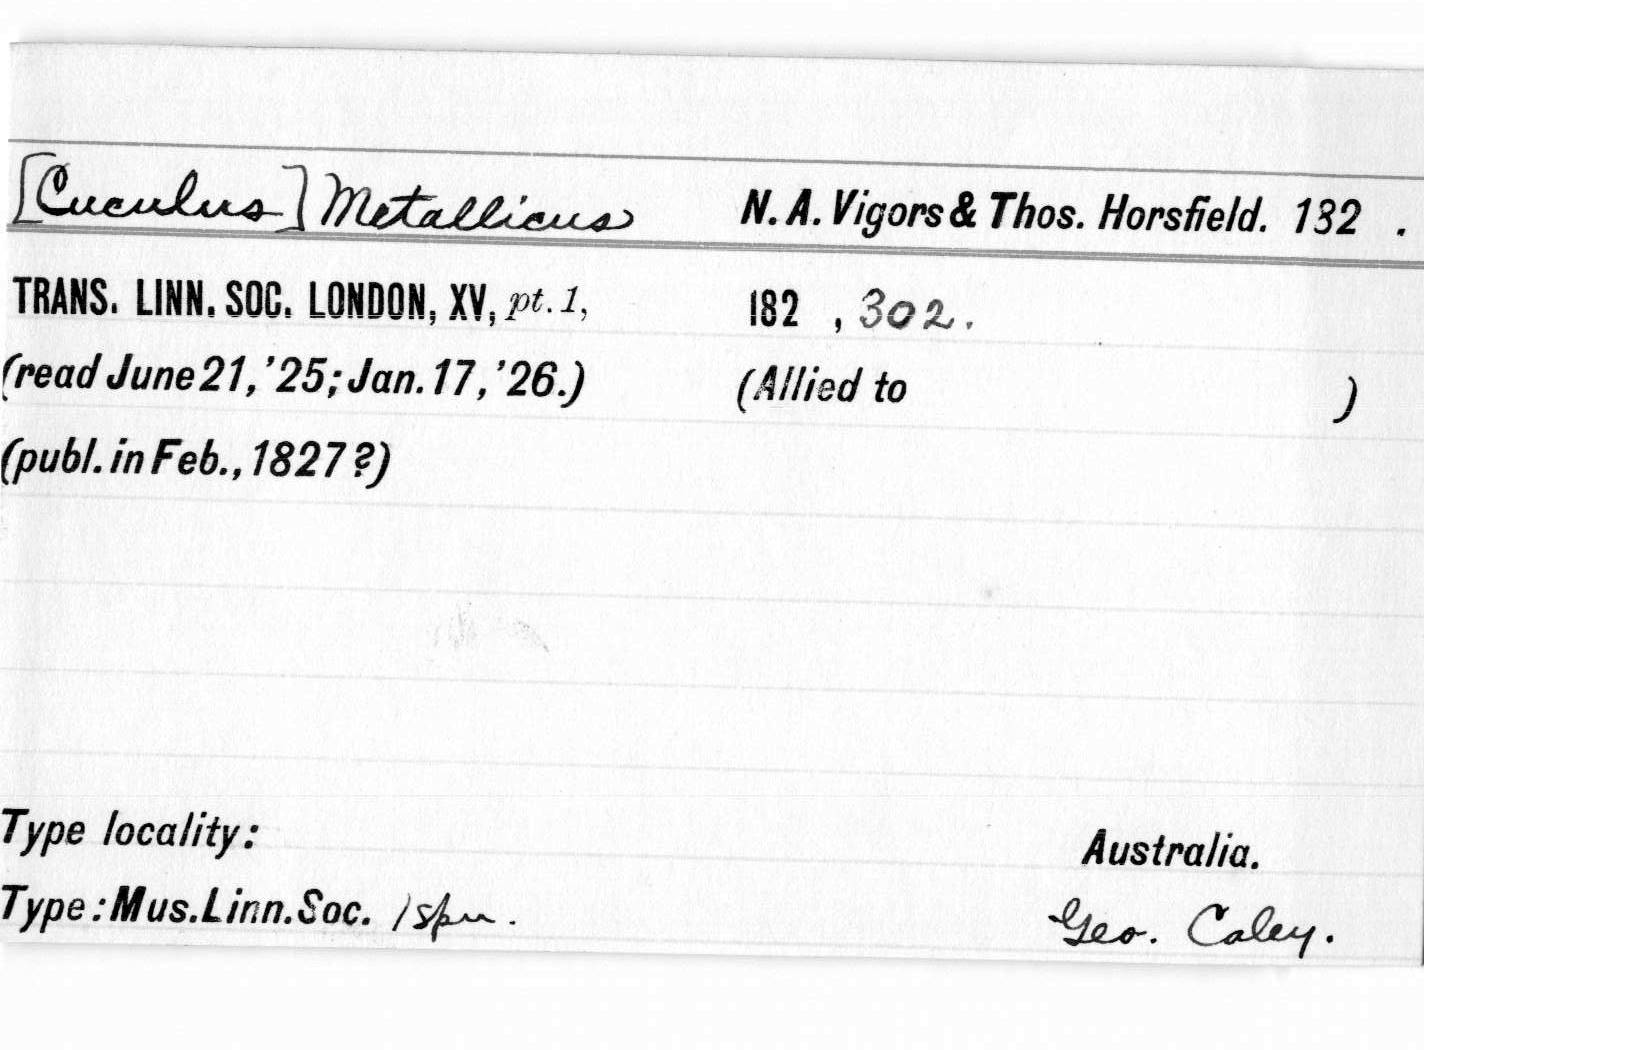 [Cuculus] Metallicus N. A. Vigors & Thos. Horsfield. 132 .
TRANS. LINN. SOC. LONDON, XV, pt. 1, 182 , 302.
(read June 21, '25; Jan. 17, '26.) (Allied to )
(publ. in Feb., 1827?)
Type locality: Australia.
Type: Mus. Linn. Soc. 1 spm. Geo. Caley.